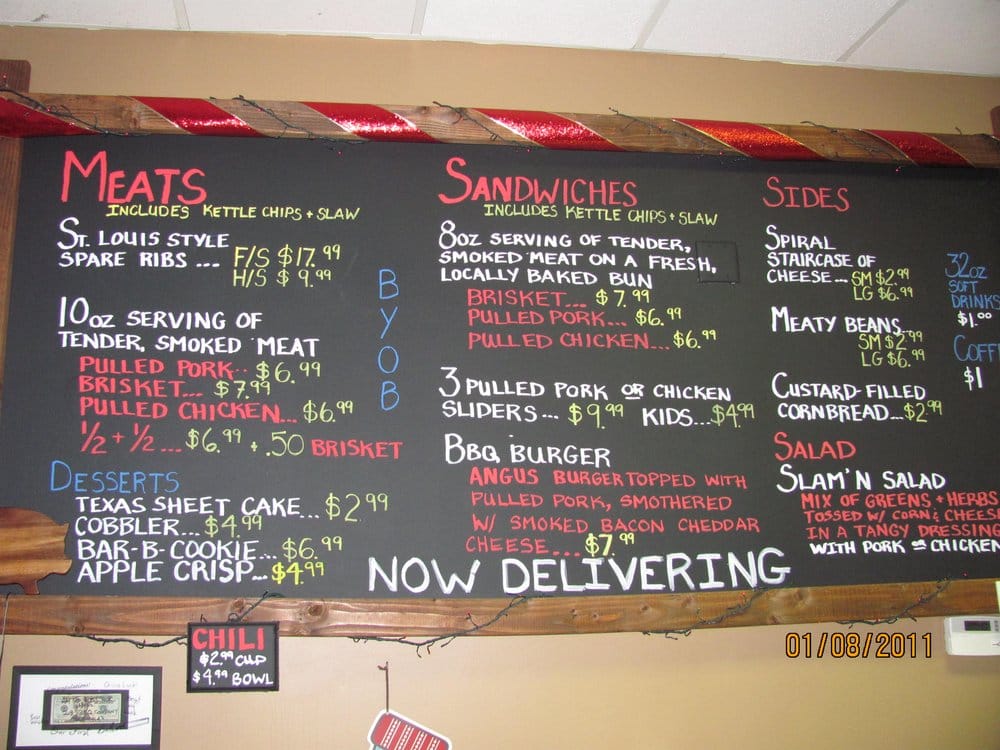 MEATS
INCLUDES KETTLE CHIPS + SLAW
ST. LOUIS STYLE
SPARE RIBS ... F/S $17.99
H/S $9.99
10oz SERVING OF
TENDER, SMOKED MEAT
PULLED PORK.. $6.99
BRISKET... $7.99
PULLED CHICKEN... $6.99
1/2 + 1/2 ... $6.99 + .50 BRISKET
BYOB
DESSERTS
TEXAS SHEET CAKE... $2.99
COBBLER... $4.99
BAR-B-COOKIE... $6.99
APPLE CRISP... $4.99
SANDWICHES
INCLUDES KETTLE CHIPS + SLAW
8oz SERVING OF TENDER,
SMOKED MEAT ON A FRESH,
LOCALLY BAKED BUN
BRISKET... $7.99
PULLED PORK... $6.99
PULLED CHICKEN... $6.99
3 PULLED PORK OR CHICKEN
SLIDERS... $9.99 KIDS... $4.99
BBQ BURGER
ANGUS BURGER TOPPED WITH
PULLED PORK, SMOTHERED
W/ SMOKED BACON CHEDDAR
CHEESE.... $7.99
NOW DELIVERING
SIDES
SPIRAL
STAIRCASE OF
CHEESE... SM $2.99
LG $6.99
MEATY BEANS...
SM $2.99
LG $6.99
CUSTARD-FILLED
CORNBREAD... $2.99
SALAD
SLAM'N SALAD
MIX OF GREENS + HERBS
TOSSED W/ CORN & CHEESE
IN A TANGY DRESSING
WITH PORK OR CHICKEN
32oz
SOFT
DRINKS
$1.00
COFF
$1
CHILI
$2.99 CUP
$4.99 BOWL
01/08/2011